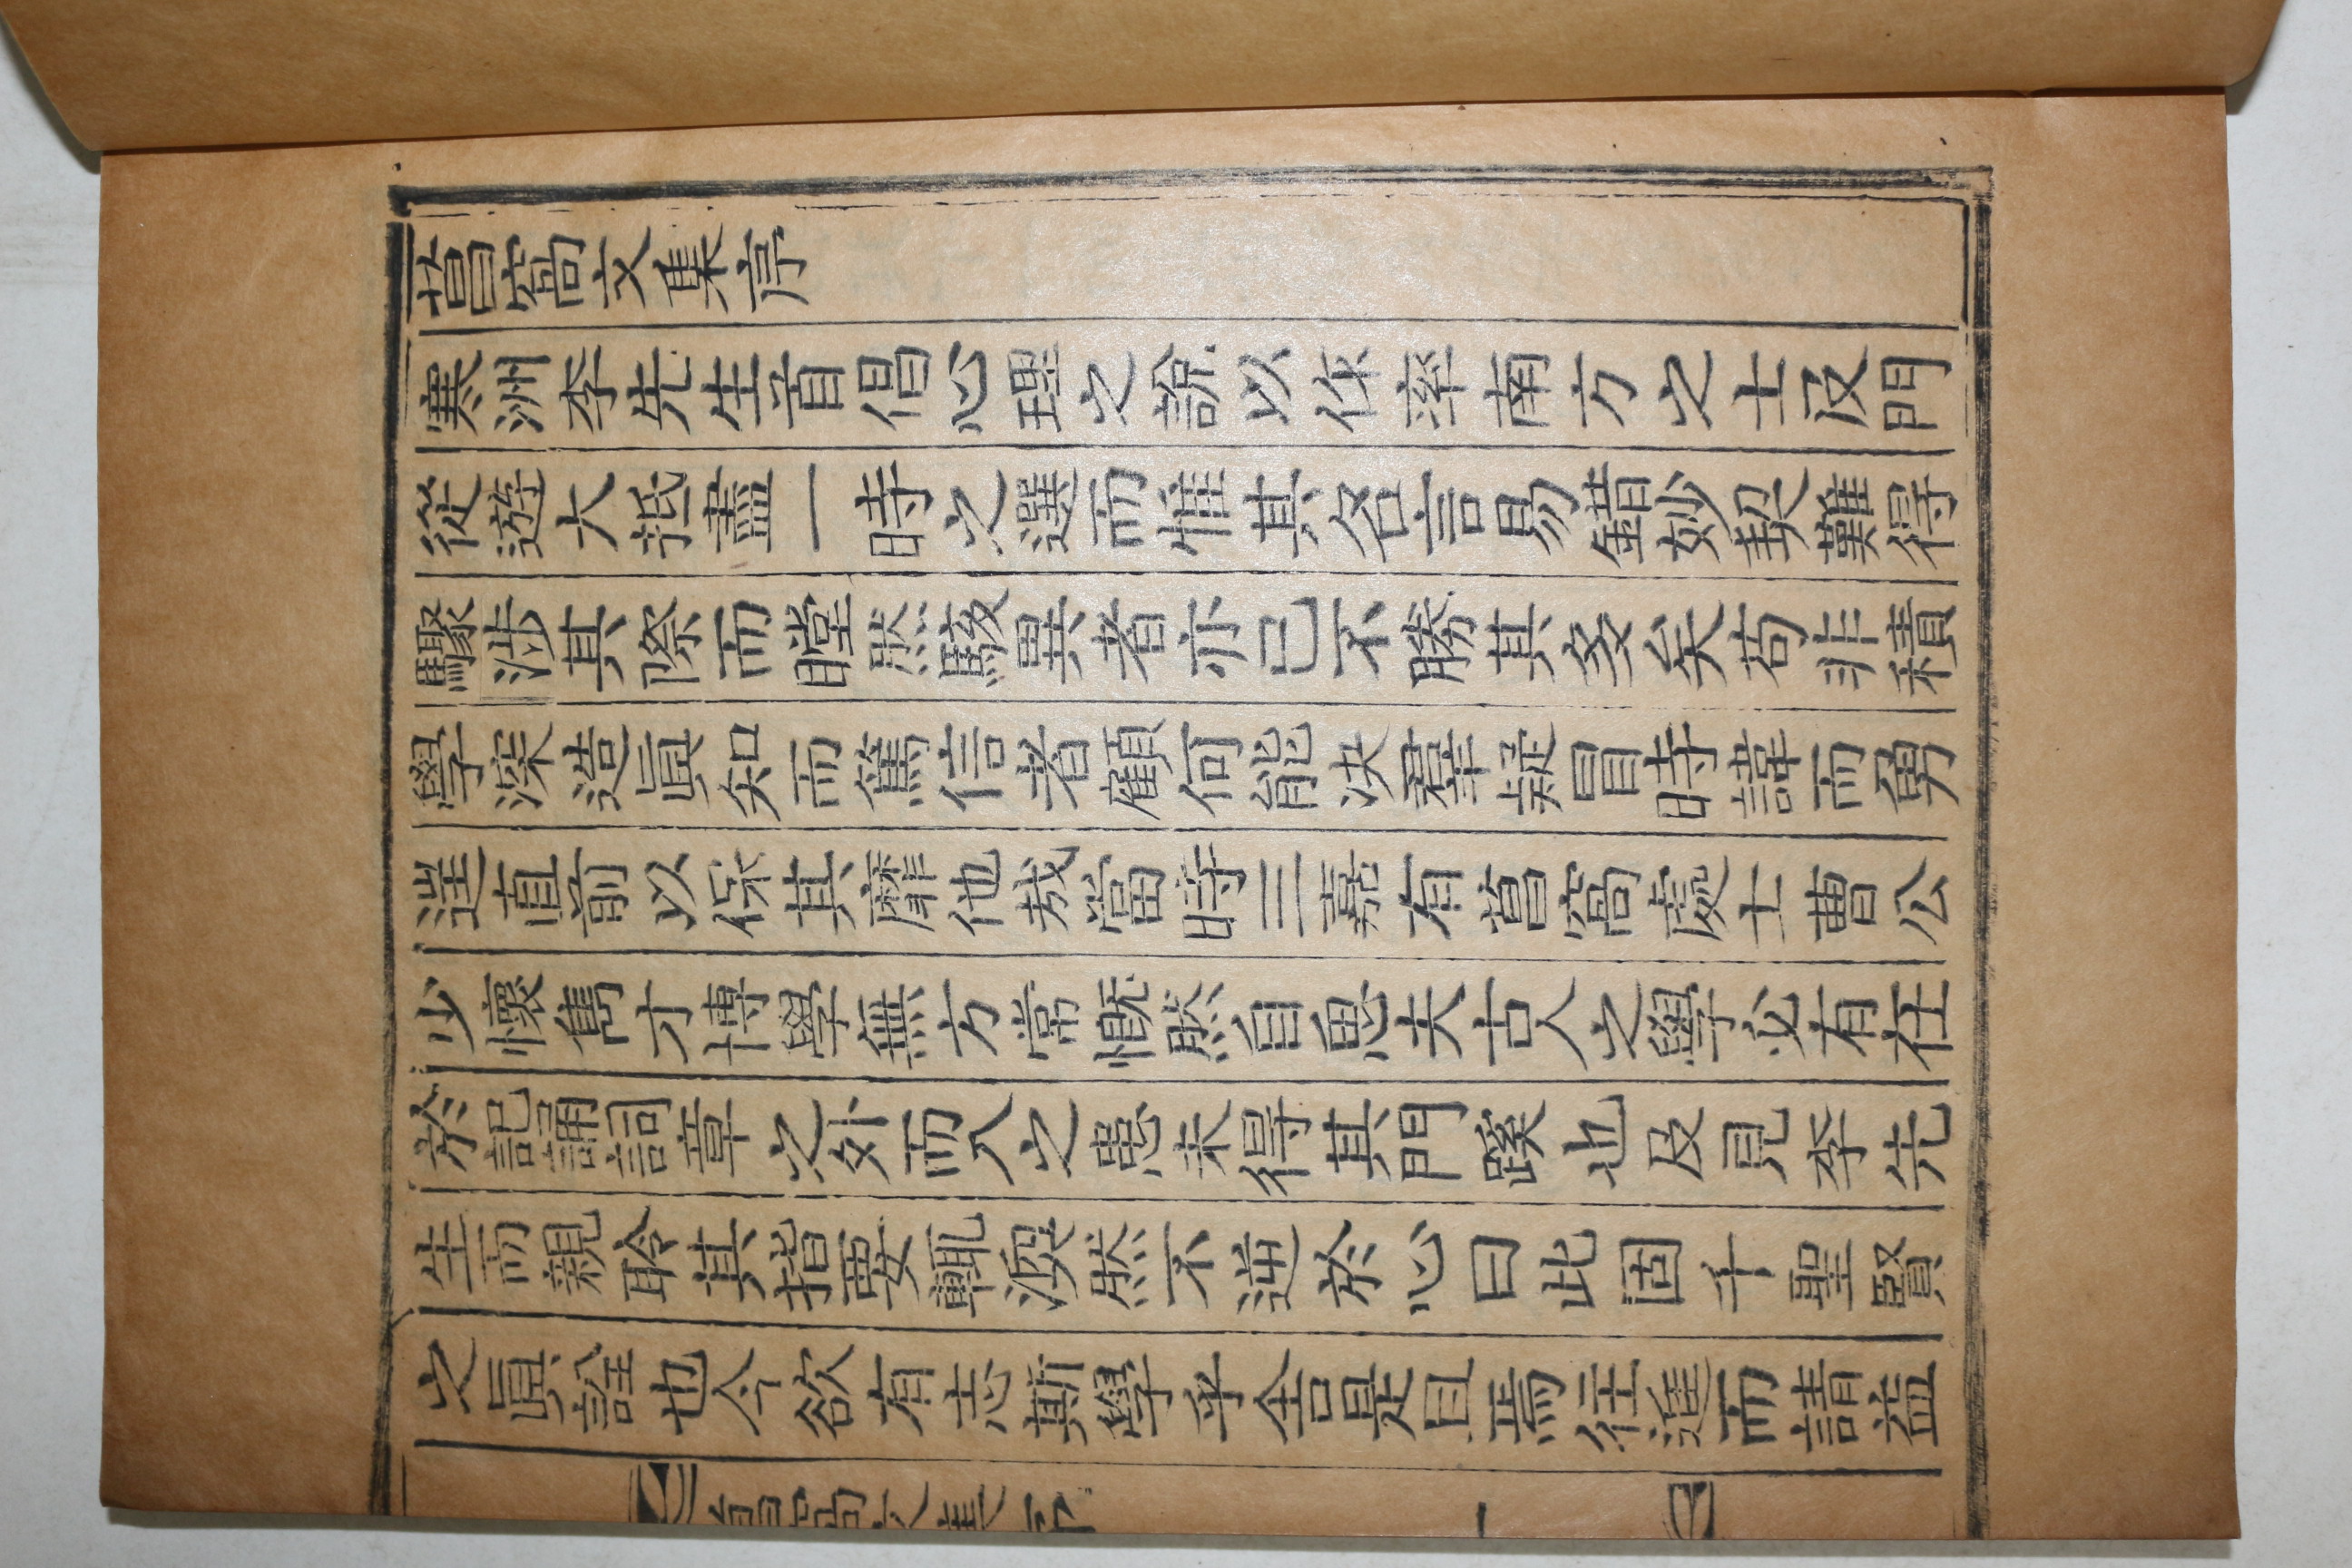 菖窩文集序
寒洲李先生首倡心理之說以作率南方之士及門
從遊大抵盡一時之選而惟其名言易錯妙契難得
驟涉其際而瞠然駭異者亦已不勝其多矣苟非積
學深造眞知而篤信者顧何能決羣疑冒時諱而勇
往直前以保其靡他哉當時三嘉有菖窩處士曹公
少懷雋才博學無方常慨然自思夫古人之學必有在
於記誦詞章之外而入之患未得其門蹊也及見李先
生而親聆其指要輒渙然不逆於心曰此固千聖賢
之眞詮也今欲有志斯學乎舍是且焉往進而請益
菖窩文集序 一